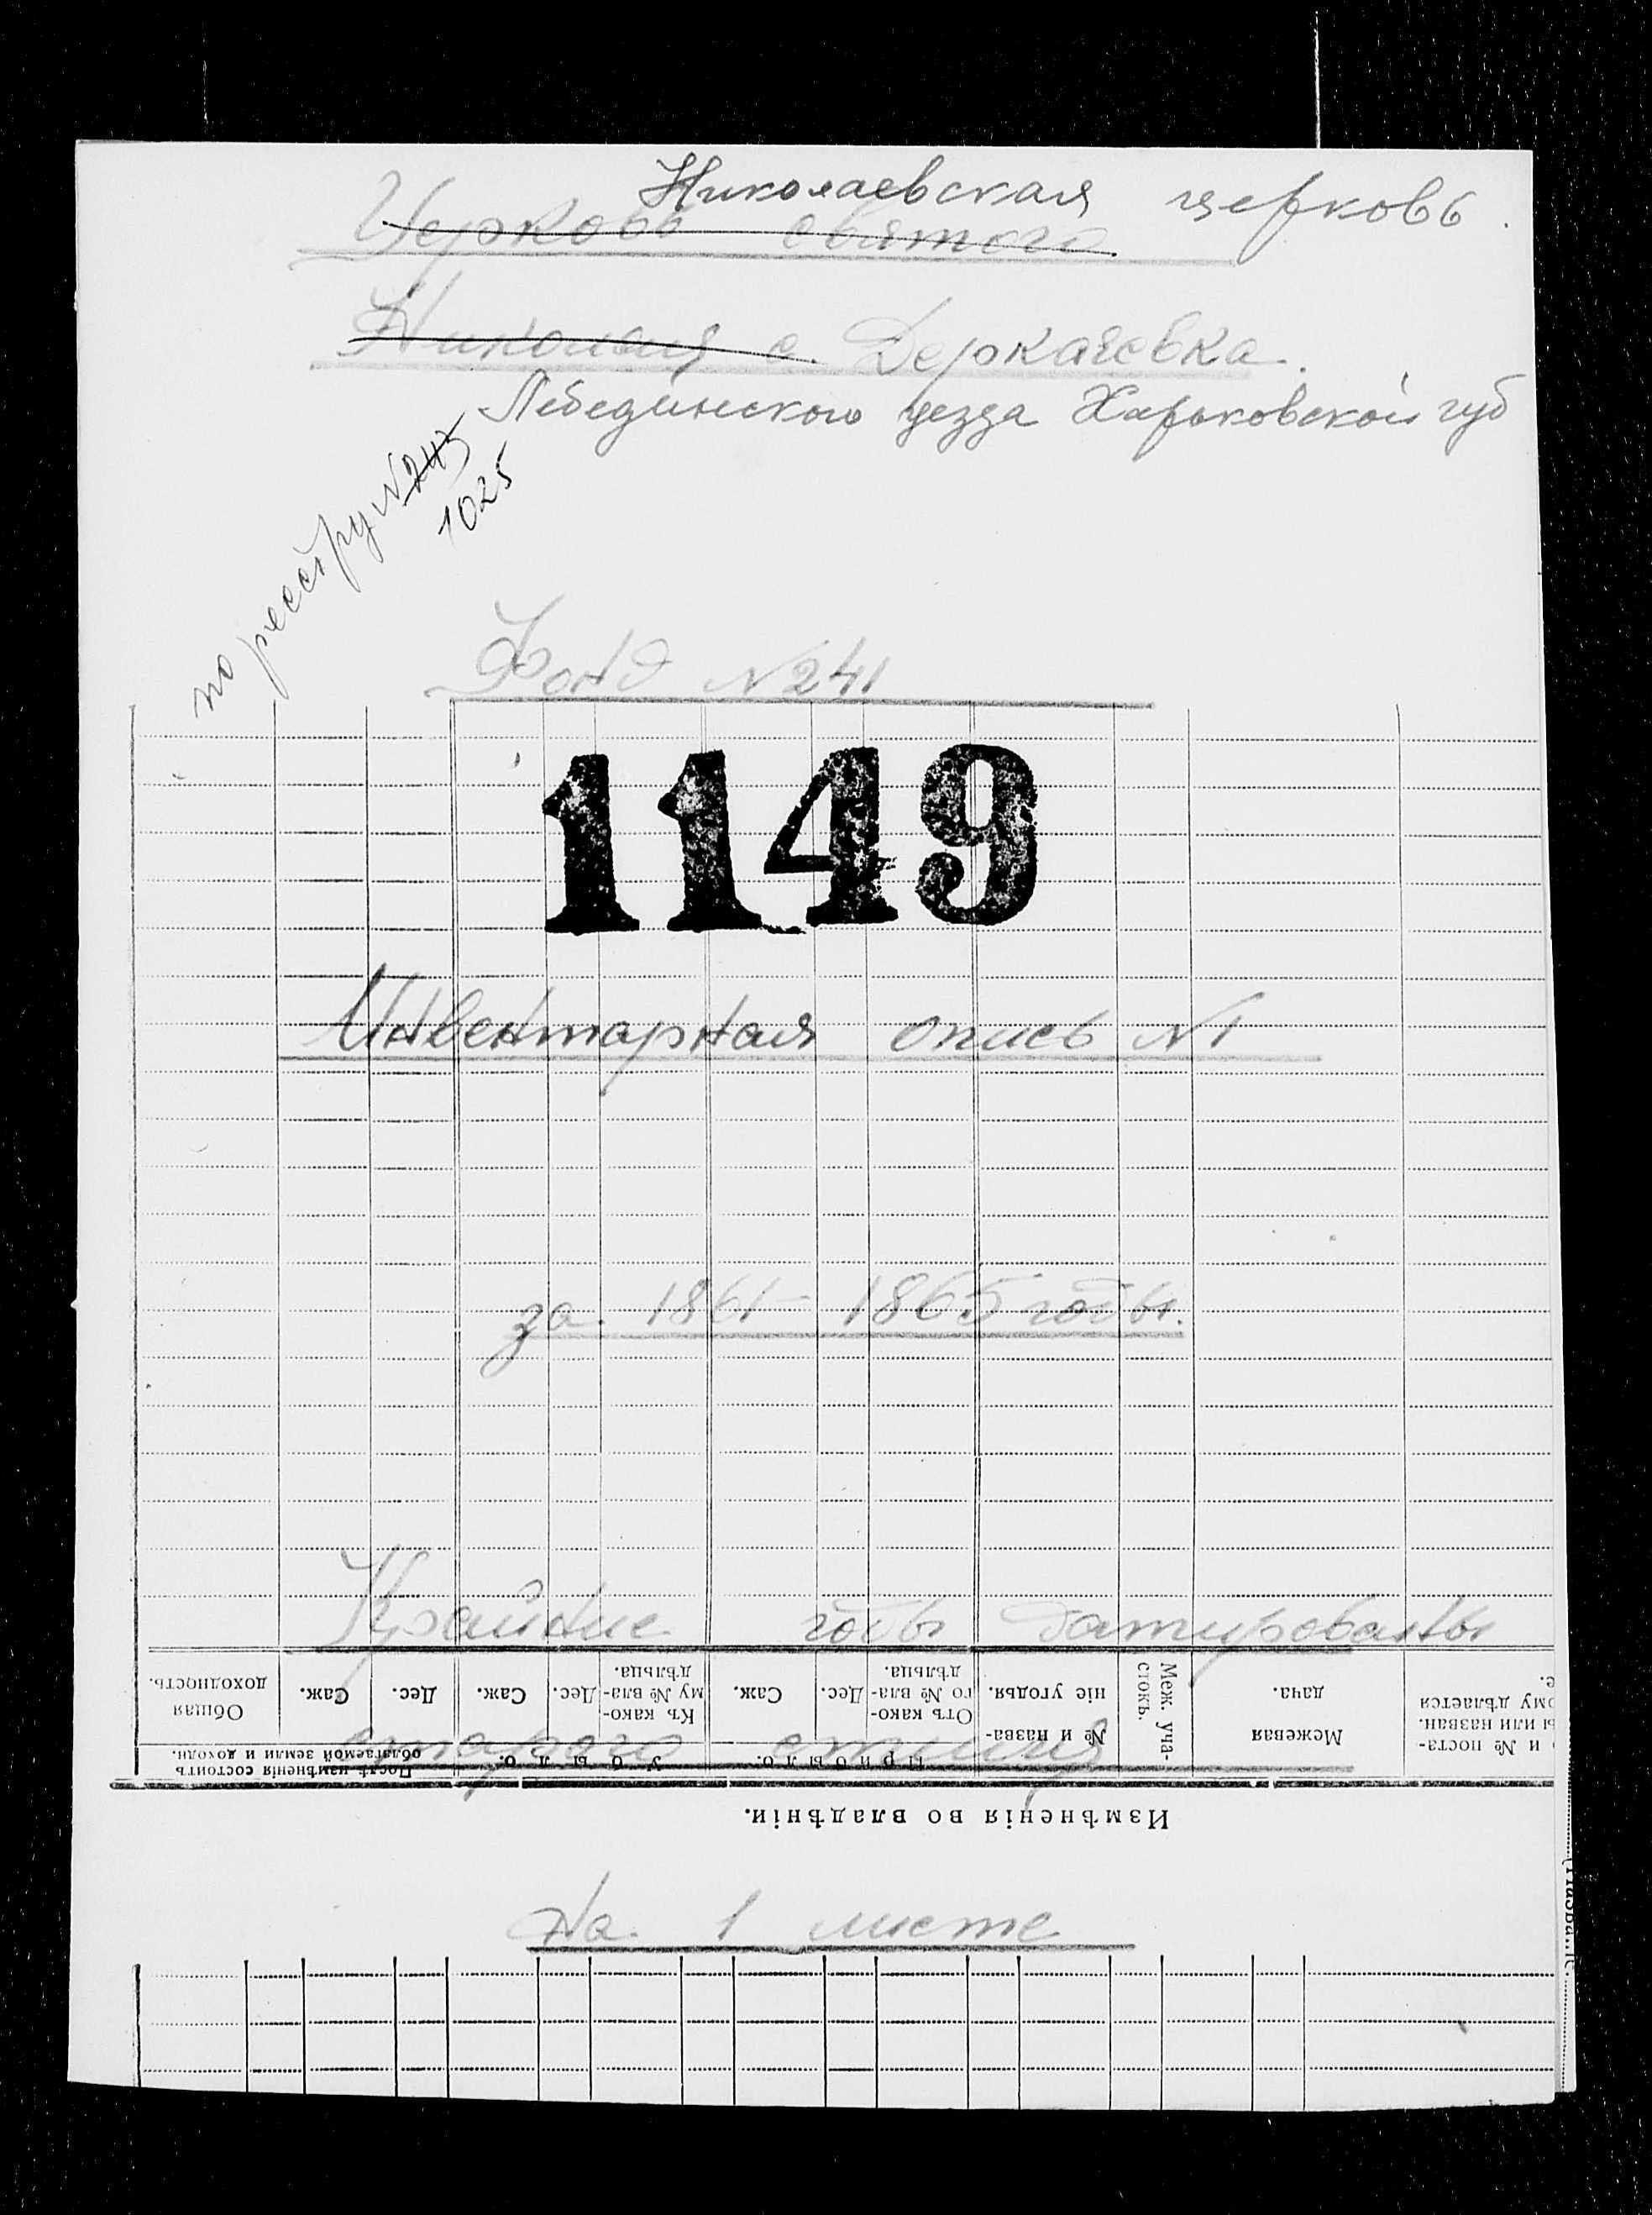 Николаевская церковь.
Церковь святого
Николая с. Деркачевка.
Лебединского уезда Харьковской губ
по реестру N 243
1025
Фонд N 241
1149
Инвентарная опись N 1
за 1861 – 1865 годы.
Крайние годы датированы
старого стиля
Измѣненія во владѣніи.
Послѣ измѣненія состоитъ облагаемой земли и доходн.
У б ы л о.
П р и б ы л о.
Общая доходность.
Саж.
Дес.
Саж.
Дес.
Къ како-му № вла-дѣльца.
Саж.
Дес.
Отъ како-го № вла-дѣльца.
№ и назва-ніе угодья.
Меж. уча-стокъ.
Межевая дача.
и № поста-
ы или назван.
ому дѣлается
е.
на 1 листе